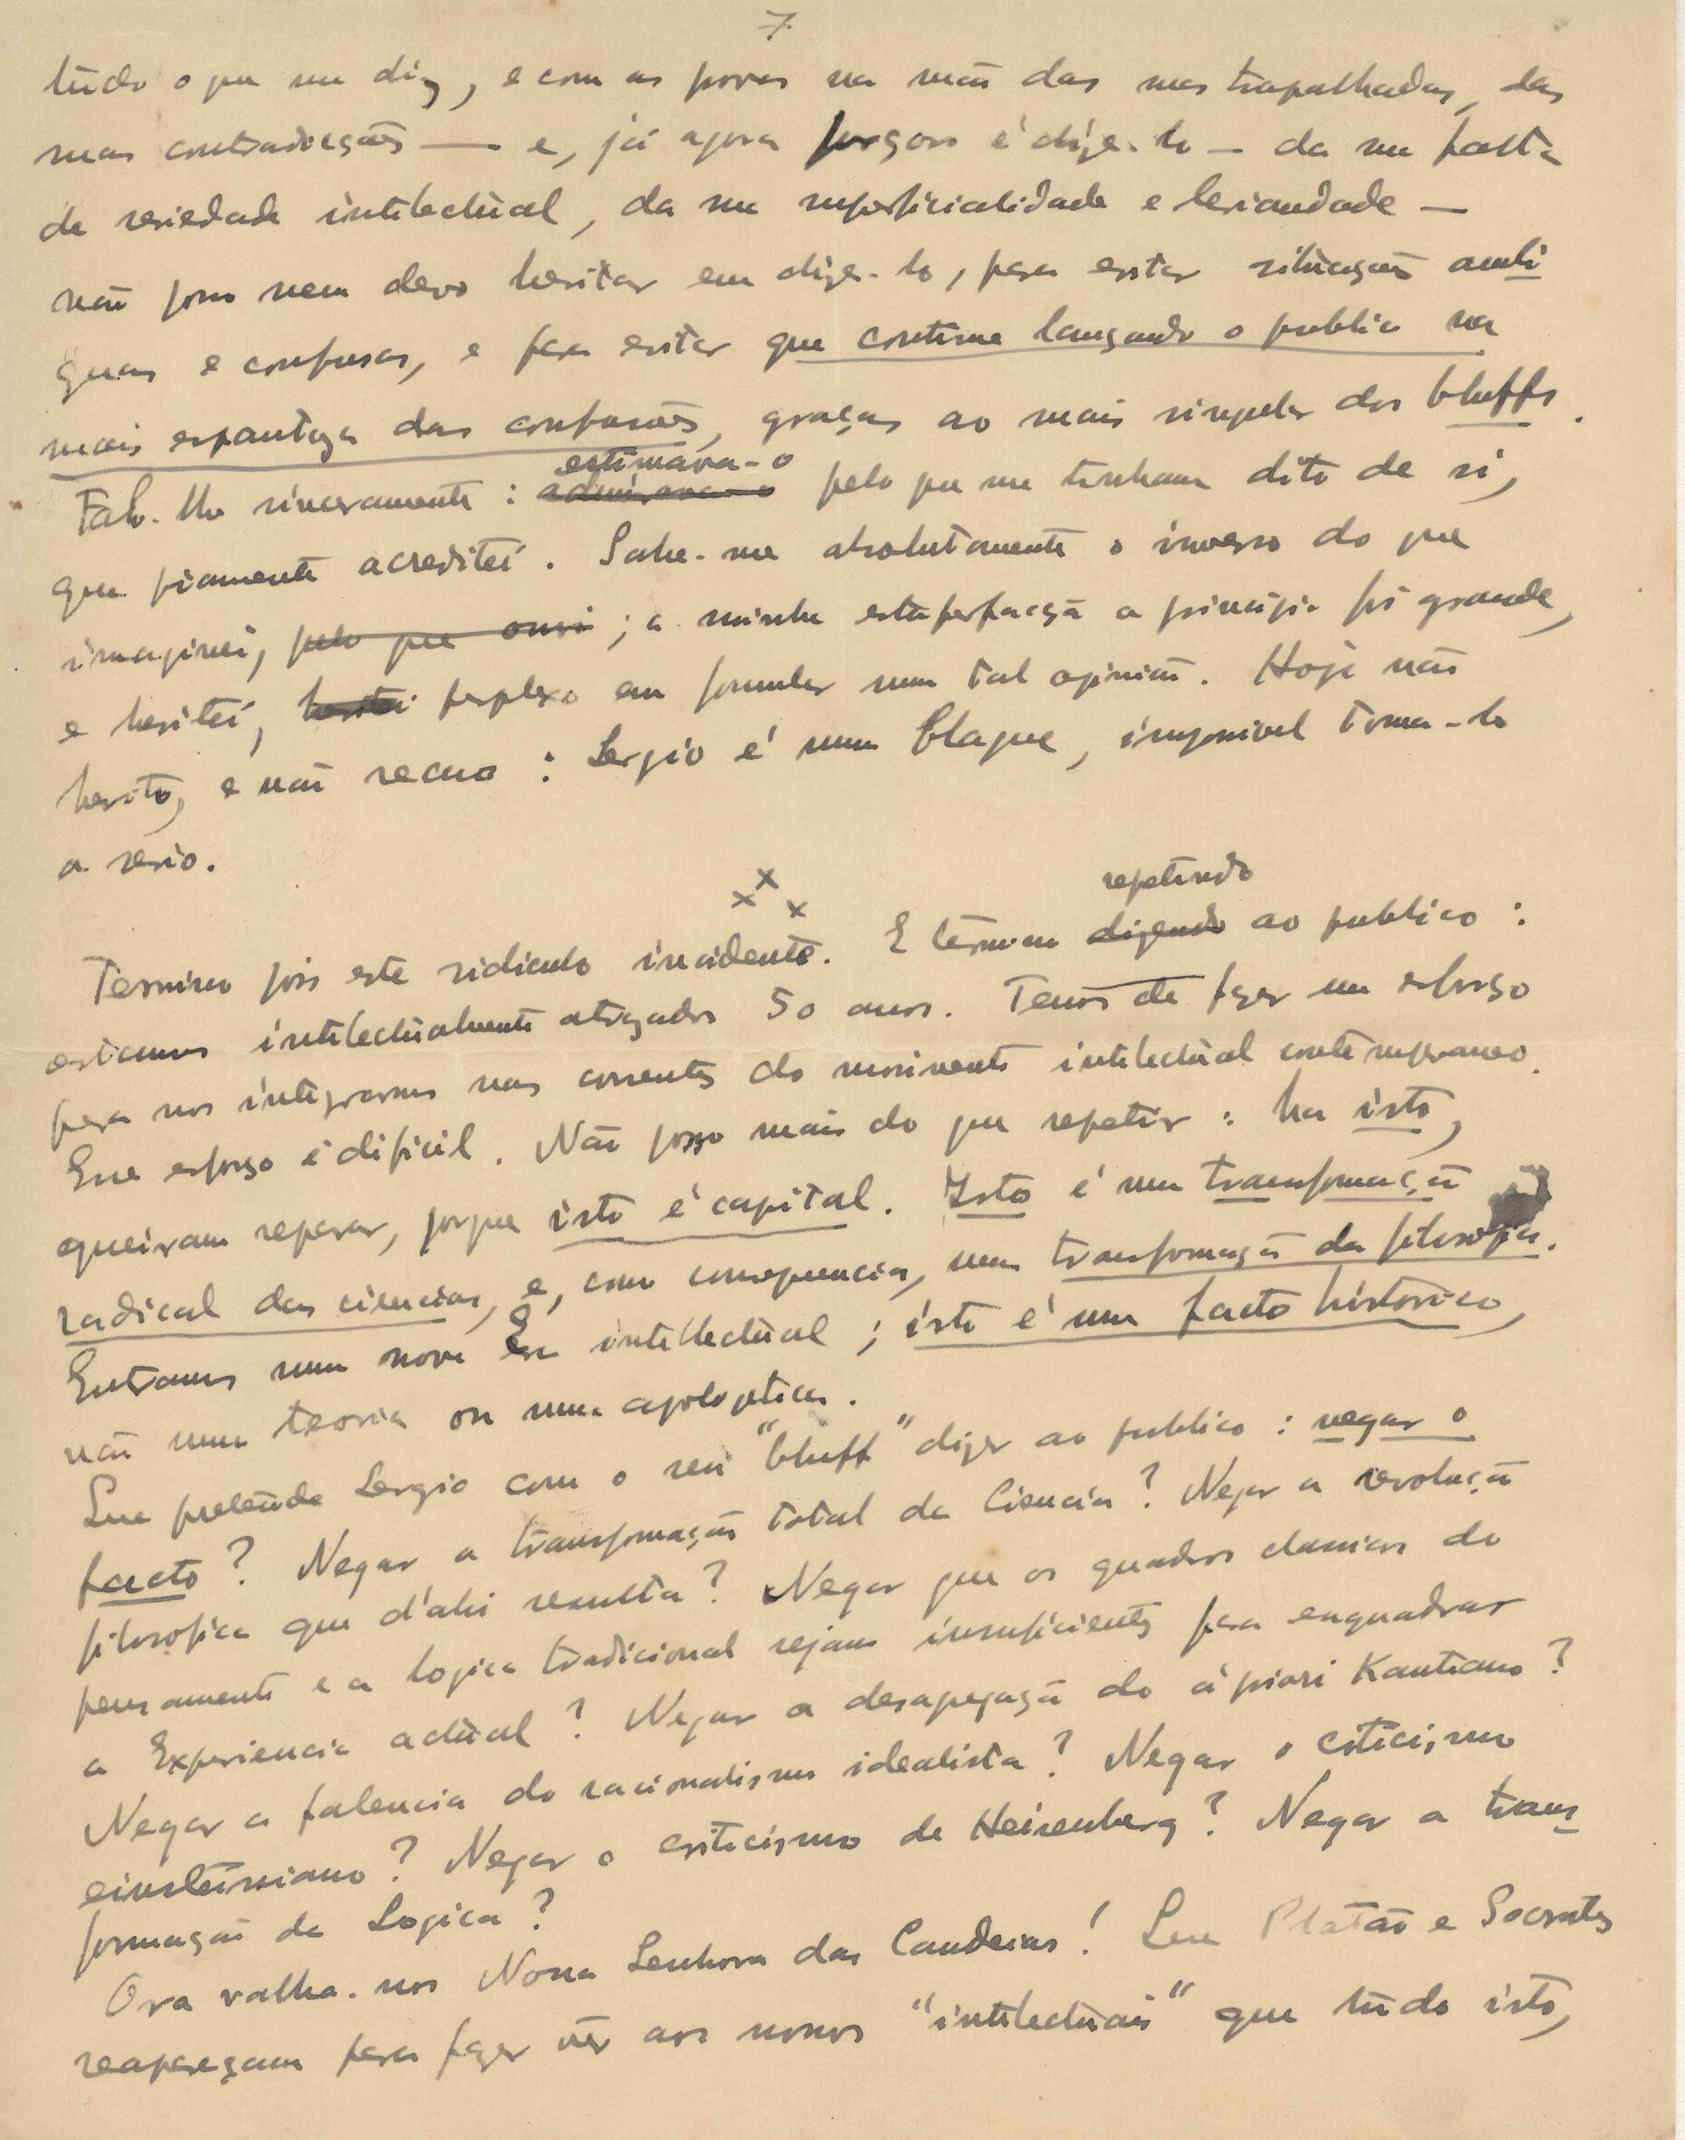 7
tudo o que me diz, e com as provas na mão das suas trapalhadas, das
suas contradicções — e, já agora forçoso é dize-lo — da sua falta
de seriedade intelectual, da sua superficialidade e leviandade —
não posso nem devo hesitar em dize-lo, para evitar situações ambi
guas e confusas, e para evitar que continue lançando o publico na
mais espantosa das confusões, graças ao mais singular dos bluffs.
estimava-o
Falo-lhe sinceramente : admirava-o pelo que me tinham dito de si,
que piamente acreditei. Sahe-me absolutamente o inverso do que
imaginei, pelo que ouvi ; a minha estupefacção a principio foi grande,
e hesitei, hesitei perplexo em formular uma tal opinião. Hoje não
hesito, e não recuo : Sergio é uma blague, impossivel toma-lo
a serio.
x x x
repetindo
Termino pois este ridiculo incidente. E termino dizendo ao publico :
estamos intelectualmente atrazados 50 anos. Temos de fazer um esforço
para nos integrarmos nas correntes do movimento intelectual contemporaneo.
Esse esforço é dificil. Não posso mais do que repetir : ha isto,
queiram reparar, porque isto é capital. Isto é uma transformação
radical das ciencias, e, como consequencia, uma transformação da filosofia.
Entramos numa nova Era intellectual ; isto é um facto historico,
não uma teoria ou uma apologetica.
Que pretende Sergio com o seu "bluff" dizer ao publico : negar o
facto ? Negar a transformação total da Ciencia ? Negar a revolução
filosofica que d'ahi resulta ? Negar que os quadros classicos do
pensamento e a logica tradicional sejam insuficientes para enquadrar
a Experiencia actual ? Negar a desagregação do á priori Kantiano ?
Negar a falencia do racionalismo idealista ? Negar o criticismo
einsteiniano ? Negar o criticismo de Heisenberg ? Negar a trans
formação da Logica ?
Ora valha-nos Nossa Senhora das Candeias ! Que Platão e Socrates
reapareçam para fazer vêr aos nossos "intelectuais" que tudo isto,